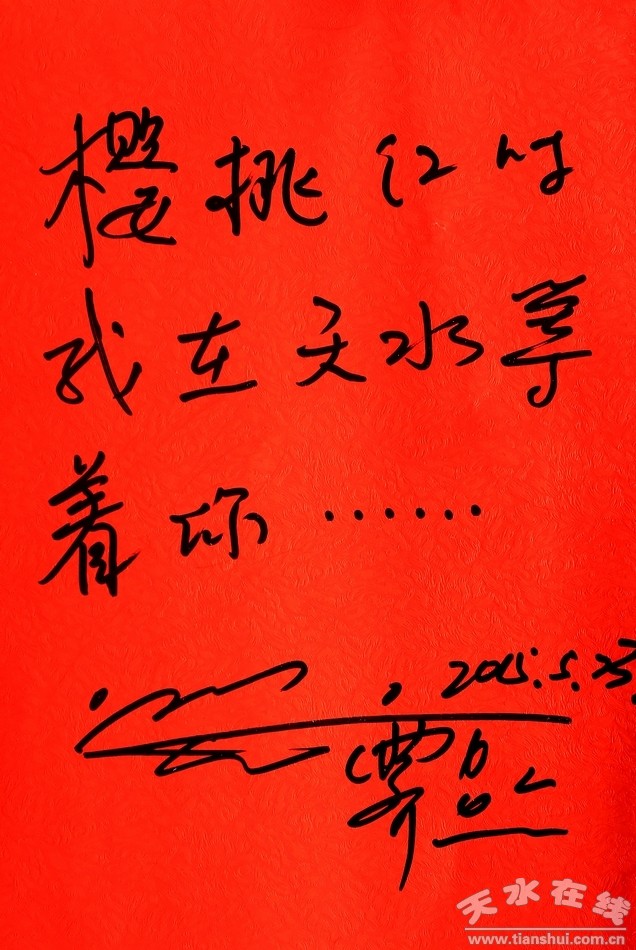 樱桃红时
我在天水等
着你……
2015.5.25
天水在线
www.tianshui.com.cn